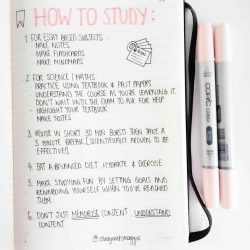 HOW TO STUDY:
1. FOR ESSAY BASED SUBJECTS:
MAKE NOTES
MAKE FLASHCARDS
MAKE MINDMAPS
2. FOR SCIENCE / MATHS
PRACTICE USING TEXTBOOK & PAST PAPERS
UNDERSTAND THE COURSE AS YOU'RE LEARNING IT.
DON'T WAIT UNTIL THE EXAM TO ASK FOR HELP
HIGHLIGHT TEXTBOOK
MAKE NOTES
3. REVISE IN SHORT 30 MIN BURSTS THEN TAKE A
5 MINUTE BREAK (SCIENTIFICALLY PROVEN TO BE
EFFECTIVE!)
4. EAT A BALANCED DIET, HYDRATE & EXERCISE
5. MAKE STUDYING FUN BY SETTING GOALS AND
REWARDING YOURSELF WHEN YOU'VE REACHED
THEM
6. DON'T JUST MEMORISE CONTENT, UNDERSTAND
CONTENT
COPIC ciao